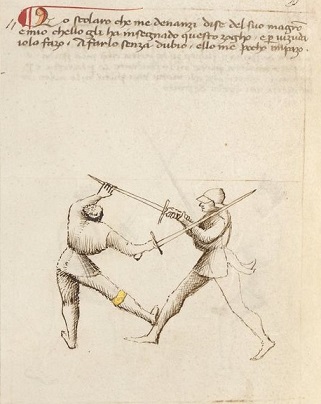 Lo scolaro che me denanzi dise del suo magro
e mio chello gli ha insegnado questo zogho · e p vizuda
iolo fazo · A farlo senza dubio · ello me pocho impazo ·